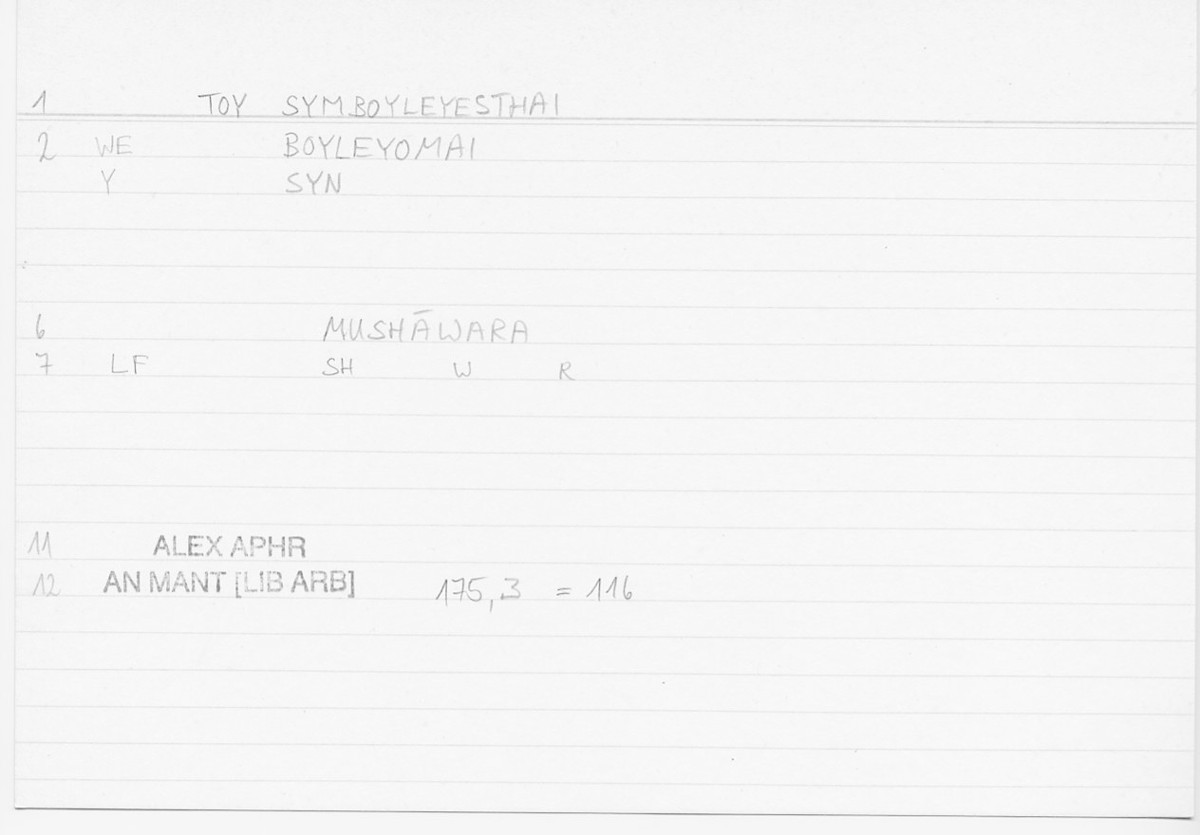 1 TOY SYMBOYLEYESTHAI
2 WE BOYLEYOMAI
Y SYN
6 MUSHĀWARA
7 LF SH W R
11 ALEX APHR
12 AN MANT [LIB ARB] 175,3 = 116